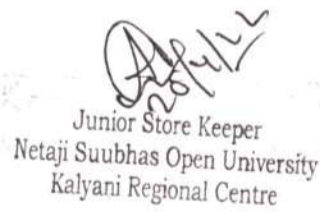 20/4/22
Junior Store Keeper
Netaji Suubhas Open University
Kalyani Regional Centre